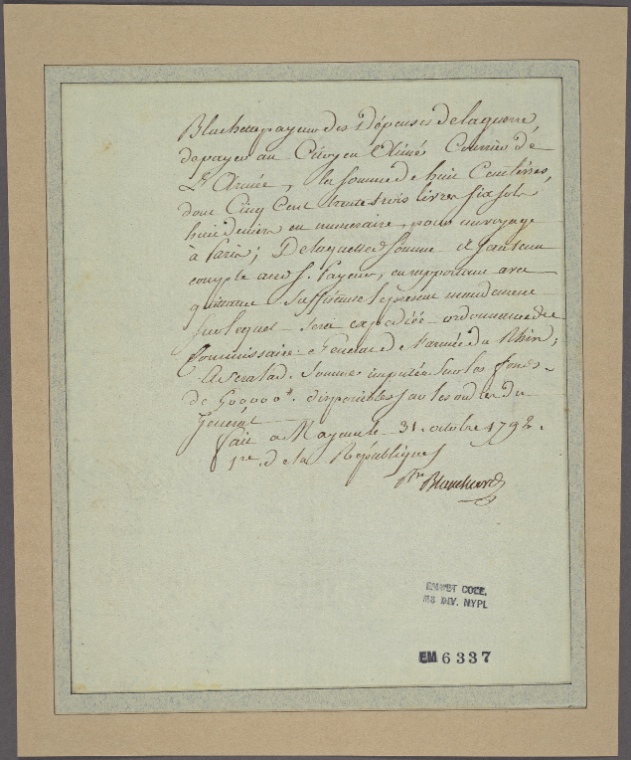 payeur des Dépenses de la guerre,
de payer au Citoyen Aimé Courrier de
L'Armée, la somme de huit Cent livres,
dont Cinq Cent trente trois livres Six sols
huit deniers en numeraire, pour un voyage
à Paris; De laquelle Somme il sera tenu
compte au S. Payeur, en rapportant avec
quittance Suffisante le present mandement
Sur lequel sera expédiée ordonnance du
Commissaire Général de l'armée du Rhin;
Sera lad. Somme imputée Sur les fonds
de 600000# disponibles Sur les ordres du
Général
Fait a Mayence le 31. octobre 1792.
1re. de la République
Blanchard
EMMET COLL.
MS DIV. NYPL
EM 6337